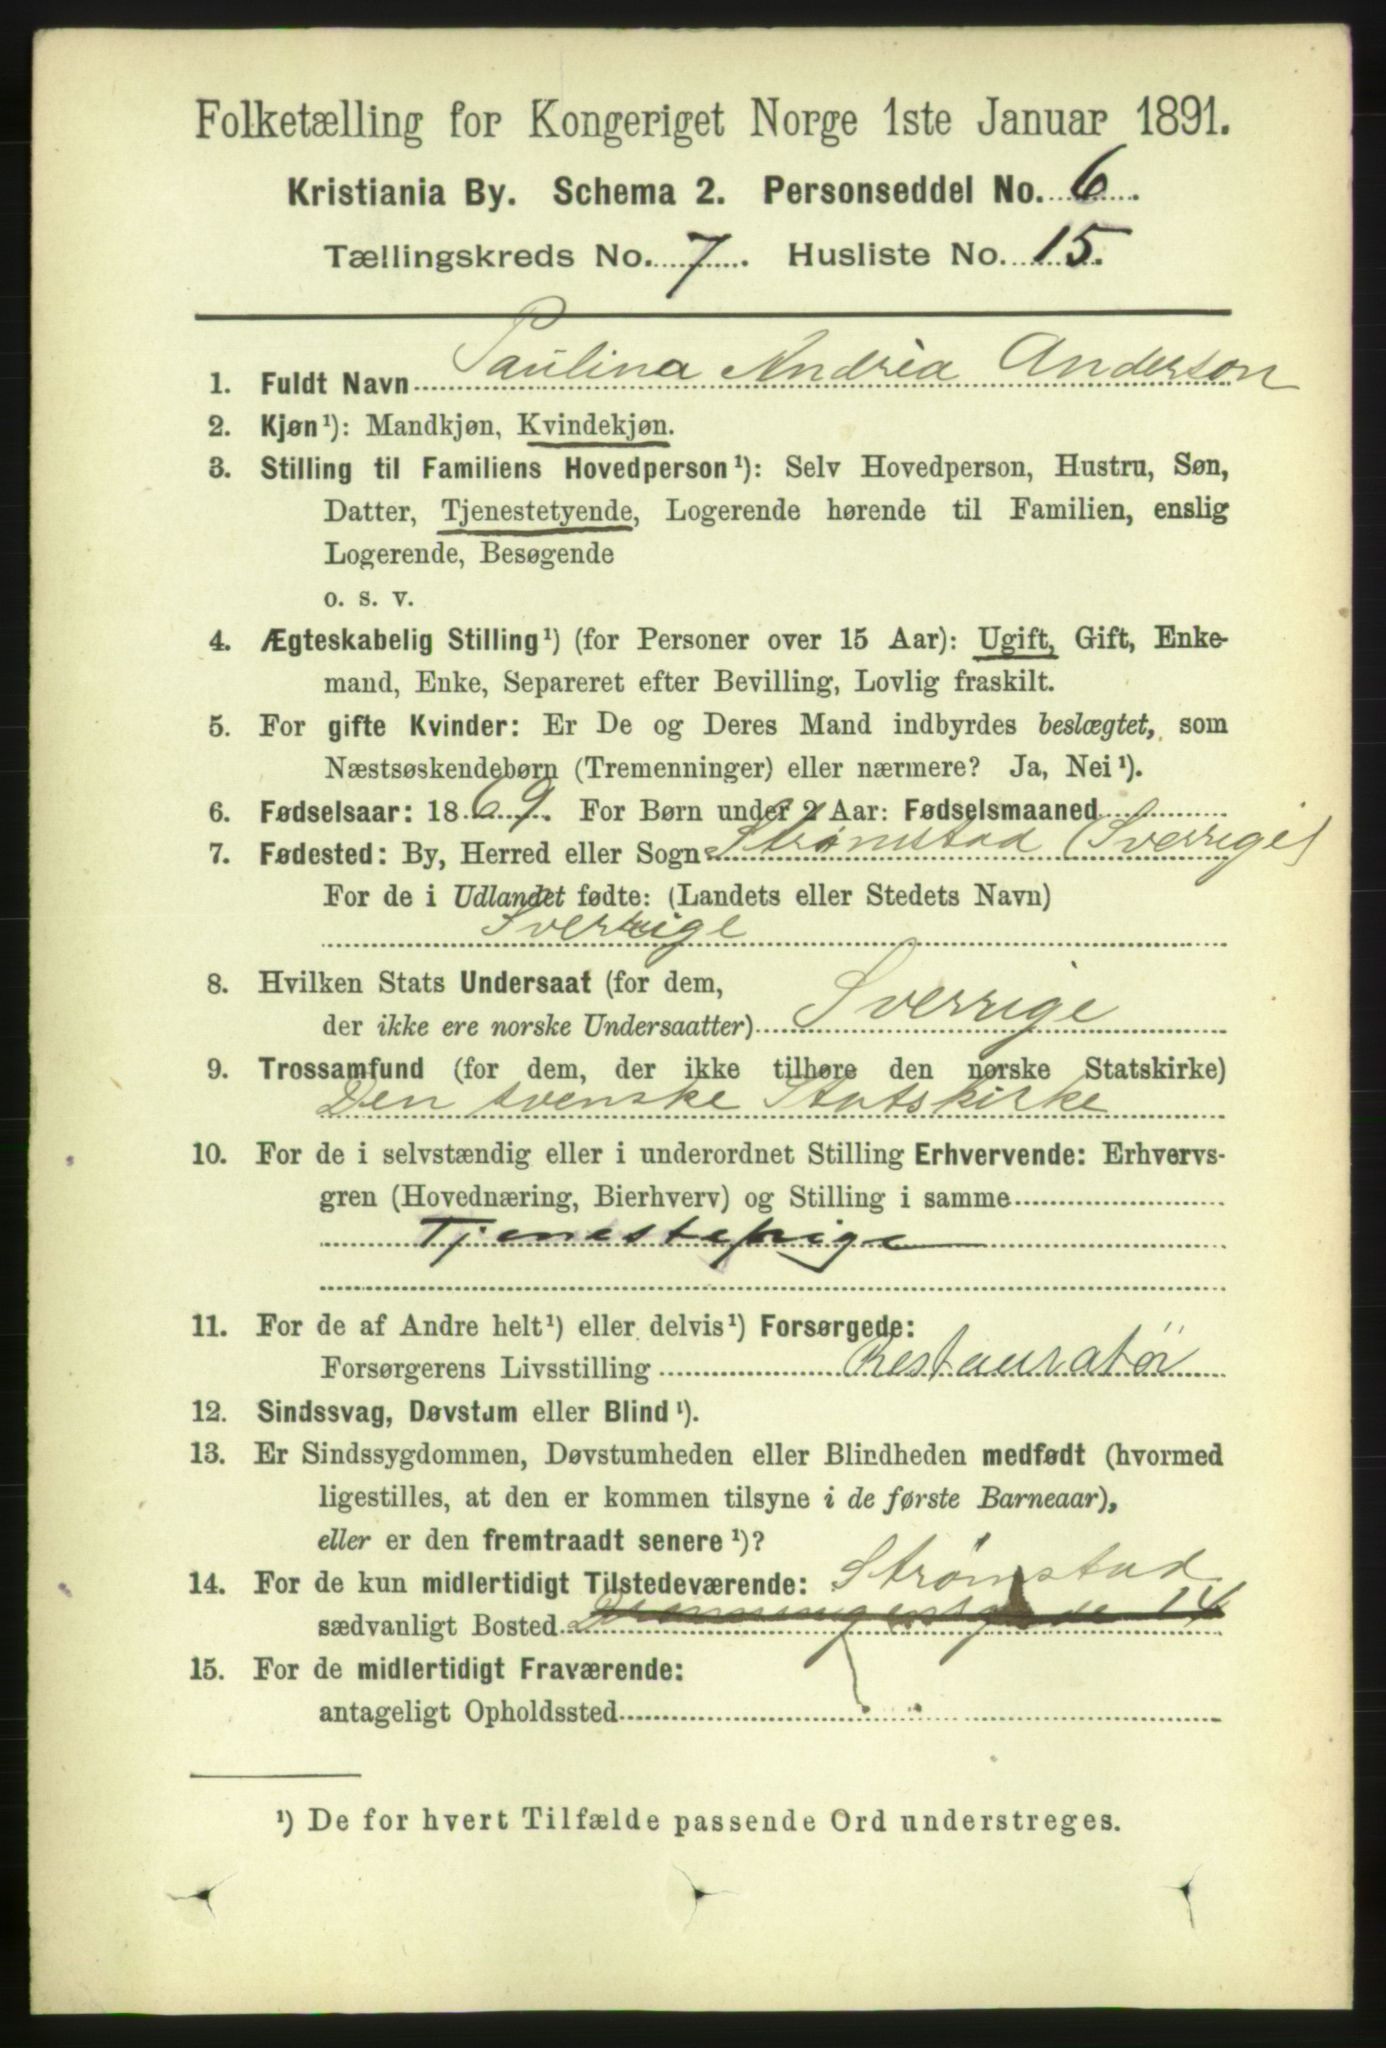 Folketælling for Kongeriget Norge 1ste Januar 1891.
Kristiania By. Schema 2. Personseddel No. 6.
Tællingskreds No. 7. Husliste No. 15.
1. Fuldt Navn Paulina Andrea Anderson
2. Kjøn¹): Mandkjøn, Kvindekjøn.
3. Stilling til Familiens Hovedperson¹): Selv Hovedperson, Hustru, Søn,
Datter, Tjenestetyende, Logerende hørende til Familien, enslig
Logerende, Besøgende
o. s. v.
4. Ægteskabelig Stilling¹) (for Personer over 15 Aar): Ugift, Gift, Enke-
mand, Enke, Separeret efter Bevilling, Lovlig fraskilt.
5. For gifte Kvinder: Er De og Deres Mand indbyrdes beslægtet, som
Næstsøskendebørn (Tremenninger) eller nærmere? Ja, Nei¹).
6. Fødselsaar: 1869. For Børn under 2 Aar: Fødselsmaaned
7. Fødested: By, Herred eller Sogn Strømstad (Sverrige)
For de i Udlandet fødte: (Landets eller Stedets Navn)
Sverrige
8. Hvilken Stats Undersaat (for dem,
der ikke ere norske Undersaatter) Sverrige
9. Trossamfund (for dem, der ikke tilhøre den norske Statskirke)
Den svenske Statskirke
10. For de i selvstændig eller i underordnet Stilling Erhvervende: Erhvervs-
gren (Hovednæring, Bierhverv) og Stilling i samme
Tjenestepige
11. For de af Andre helt¹) eller delvis¹) Forsørgede:
Forsørgerens Livsstilling Restauratør
12. Sindssvag, Døvstum eller Blind¹).
13. Er Sindssygdommen, Døvstumheden eller Blindheden medfødt (hvormed
ligestilles, at den er kommen tilsyne i de første Barneaar),
eller er den fremtraadt senere¹)?
14. For de kun midlertidigt Tilstedeværende: Strømstad
sædvanligt Bosted Dronningensgade 14
15. For de midlertidigt Fraværende:
antageligt Opholdssted
¹) De for hvert Tilfælde passende Ord understreges.